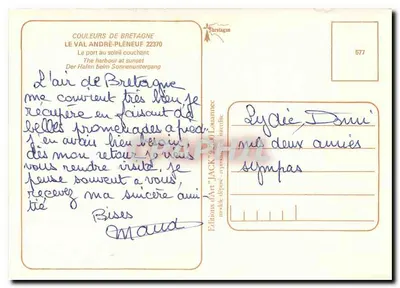 COULEURS DE BRETAGNE
LE VAL ANDRÉ-PLÉNEUF 22370
Le port au soleil couchant
The harbour at sunset
Der Hafen beim Sonnenuntergang
L'air de Bretagne
me convient très bien, je
récupère en faisant de
belles promenades à pied
j'en avais bien besoin
dès mon retour je vais
vous rendre visite, je
pense souvent à vous,
recevez ma sincère ami-
tié
Bises
Maud
Bretagne
Editions d'Art "JACK"
577
Lydie
mes deux amies
sympas